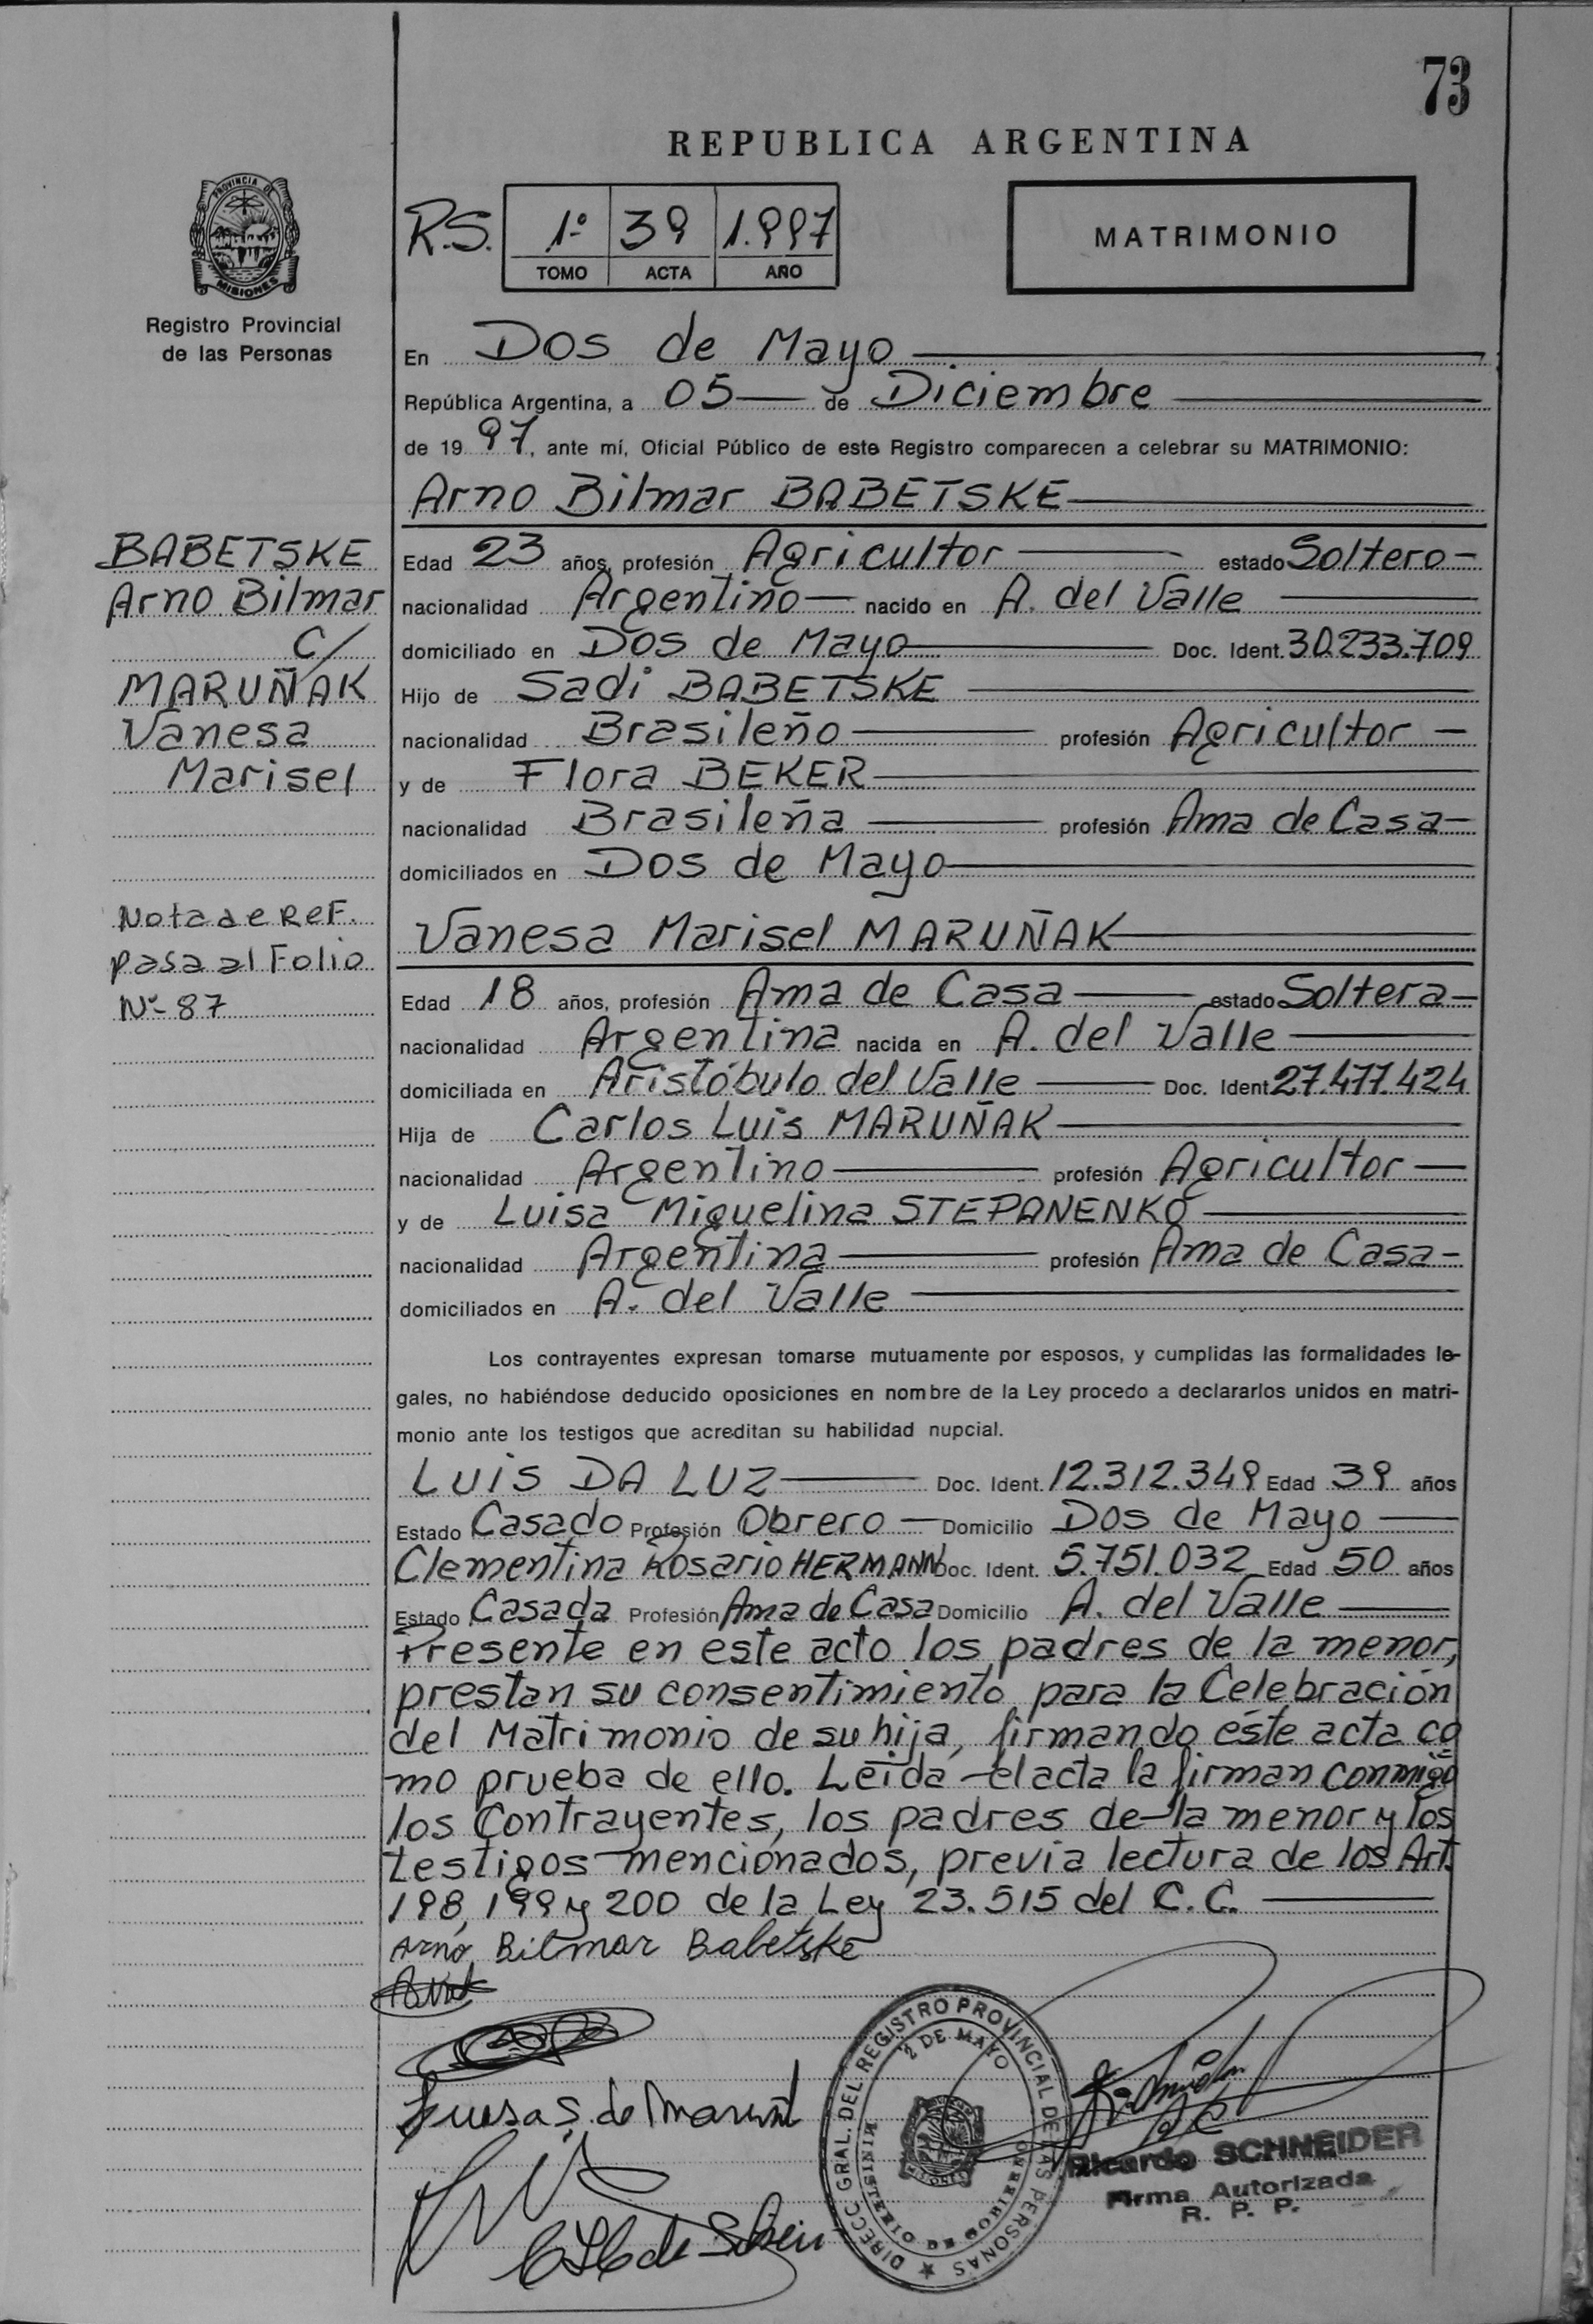 73
REPUBLICA ARGENTINA
PROVINCIA DE
MISIONES
Registro Provincial
de las Personas
R.S. 1º 39 1.997
TOMO ACTA AÑO
MATRIMONIO
En Dos de Mayo
República Argentina, a 05 de Diciembre
de 19 97, ante mí, Oficial Público de este Registro comparecen a celebrar su MATRIMONIO:
Arno Bilmar BABETSKE
BABETSKE
Arno Bilmar
C/
MARUÑAK
Vanesa
Marisel
Edad 23 años, profesión Agricultor estado Soltero
nacionalidad Argentino nacido en A. del Valle
domiciliado en Dos de Mayo Doc. Ident. 30.233.709
Hijo de Sadi BABETSKE
nacionalidad Brasileño profesión Agricultor
y de Flora BEKER
nacionalidad Brasileña profesión Ama de Casa
domiciliados en Dos de Mayo
Nota de Ref.
pasa al Folio
Nº 87
Vanesa Marisel MARUÑAK
Edad 18 años, profesión Ama de Casa estado Soltera
nacionalidad Argentina nacida en A. del Valle
domiciliada en Aristóbulo del Valle Doc. Ident 27.477.424
Hija de Carlos Luis MARUÑAK
nacionalidad Argentino profesión Agricultor
y de Luisa Miguelina STEPANENKO
nacionalidad Argentina profesión Ama de Casa
domiciliados en A. del Valle
Los contrayentes expresan tomarse mutuamente por esposos, y cumplidas las formalidades le-
gales, no habiéndose deducido oposiciones en nombre de la Ley procedo a declararlos unidos en matri-
monio ante los testigos que acreditan su habilidad nupcial.
LUIS DA LUZ Doc. Ident. 12.312.349 Edad 39 años
Estado Casado Profesión Obrero Domicilio Dos de Mayo
Clementina Rosario HERMANN Doc. Ident. 5.751.032 Edad 50 años
Estado Casada Profesión Ama de Casa Domicilio A. del Valle
Presente en este acto los padres de la menor,
prestan su consentimiento para la Celebración
del Matrimonio de su hija, firmando este acta co
mo prueba de ello. Leída el acta la firman conmigo
los Contrayentes, los padres de la menor y los
testigos mencionados, previa lectura de los Art.
198, 199 y 200 de la Ley 23.515 del C.C.
Arno Bilmar Babetske
DIRECC GRAL. DEL REGISTRO PROVINCIAL DE LAS PERSONAS
2 DE MAYO
MINISTERIO DE GOBIERNO
Ricardo SCHNEIDER
Firma Autorizada
R. P. P.